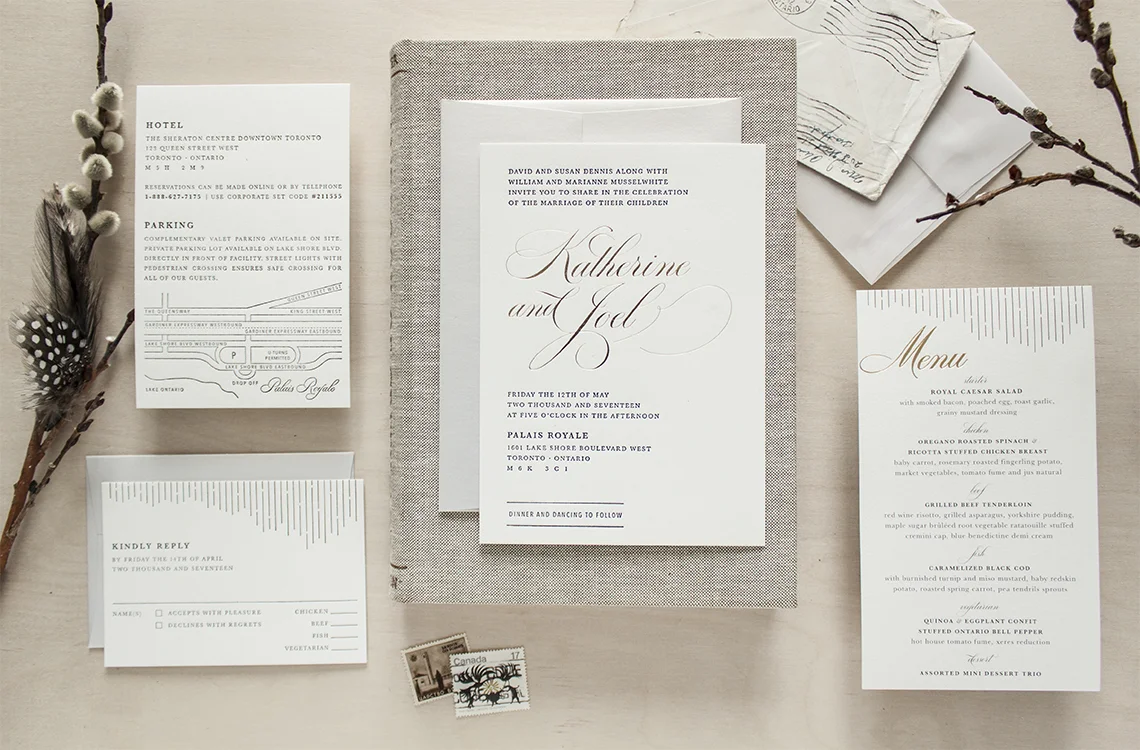 HOTEL
THE SHERATON CENTRE DOWNTOWN TORONTO
123 QUEEN STREET WEST
TORONTO · ONTARIO
M 5 H 2 M 9
RESERVATIONS CAN BE MADE ONLINE OR BY TELEPHONE
1-888-627-7175 | USE CORPORATE SET CODE #211555
PARKING
COMPLEMENTARY VALET PARKING AVAILABLE ON SITE.
PRIVATE PARKING LOT AVAILABLE ON LAKE SHORE BLVD.
DIRECTLY IN FRONT OF FACILITY, STREET LIGHTS WITH
PEDESTRIAN CROSSING ENSURES SAFE CROSSING FOR
ALL OF OUR GUESTS.
QUEEN STREET WEST
THE QUEENSWAY
KING STREET WEST
GARDINER EXPRESSWAY WESTBOUND
GARDINER EXPRESSWAY EASTBOUND
LAKE SHORE BLVD WESTBOUND
P
U-TURNS
PERMITTED
LAKE SHORE BLVD EASTBOUND
DROP OFF
LAKE ONTARIO
Palais Royale
KINDLY REPLY
BY FRIDAY THE 14TH OF APRIL
TWO THOUSAND AND SEVENTEEN
NAME(S)
ACCEPTS WITH PLEASURE
DECLINES WITH REGRETS
CHICKEN
BEEF
FISH
VEGETARIAN
DAVID AND SUSAN DENNIS ALONG WITH
WILLIAM AND MARIANNE MUSSELWHITE
INVITE YOU TO SHARE IN THE CELEBRATION
OF THE MARRIAGE OF THEIR CHILDREN
Katherine
and Joel
FRIDAY THE 12TH OF MAY
TWO THOUSAND AND SEVENTEEN
AT FIVE O'CLOCK IN THE AFTERNOON
PALAIS ROYALE
1601 LAKE SHORE BOULEVARD WEST
TORONTO · ONTARIO
M 6 K 3 C 1
DINNER AND DANCING TO FOLLOW
Canada 17
ONTARIO
Menu
starter
ROYAL CAESAR SALAD
with smoked bacon, poached egg, roast garlic,
grainy mustard dressing
chicken
OREGANO ROASTED SPINACH &
RICOTTA STUFFED CHICKEN BREAST
baby carrot, rosemary roasted fingerling potato,
market vegetables, tomato fume and jus natural
beef
GRILLED BEEF TENDERLOIN
red wine risotto, grilled asparagus, yorkshire pudding,
maple sugar brûléed root vegetable ratatouille stuffed
cremini cap, blue benedictine demi cream
fish
CARAMELIZED BLACK COD
with burnished turnip and miso mustard, baby redskin
potato, roasted spring carrot, pea tendrils sprouts
vegetarian
QUINOA & EGGPLANT CONFIT
STUFFED ONTARIO BELL PEPPER
hot house tomato fume, xeres reduction
dessert
ASSORTED MINI DESSERT TRIO